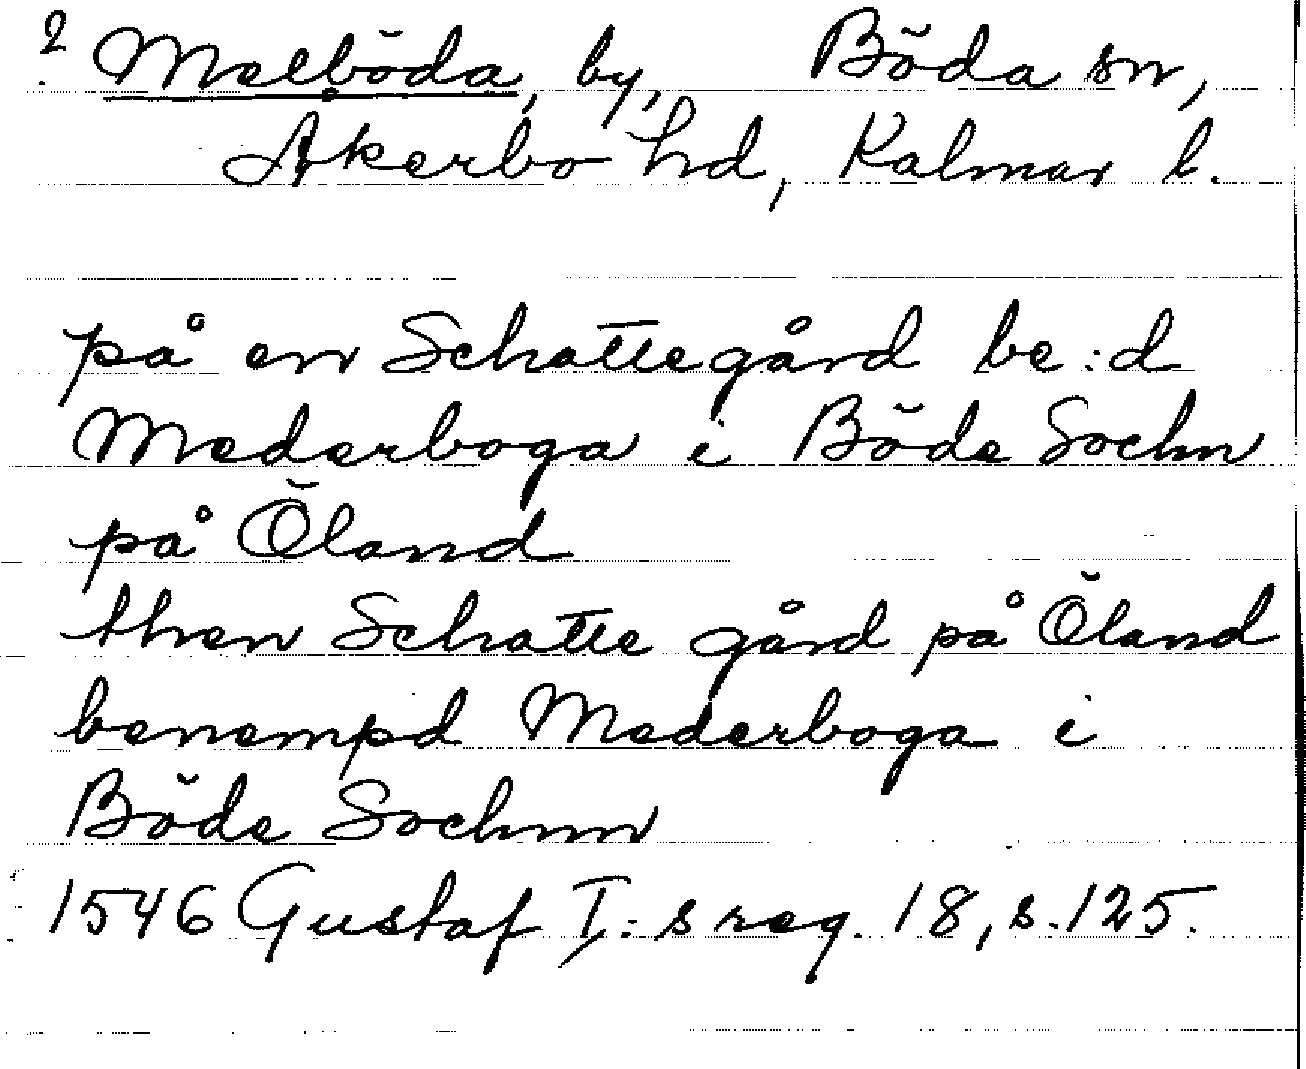 ? Melböda, by, Böda sn,
Åkerbo hd, Kalmar l.
på en Schattegård be:d
Mederboga i Böde Sochn
på Öland
then Schatte gård på Öland
benempd Mederboga i
Böde Sochnn
1546 Gustaf I:s reg. 18, s. 125.